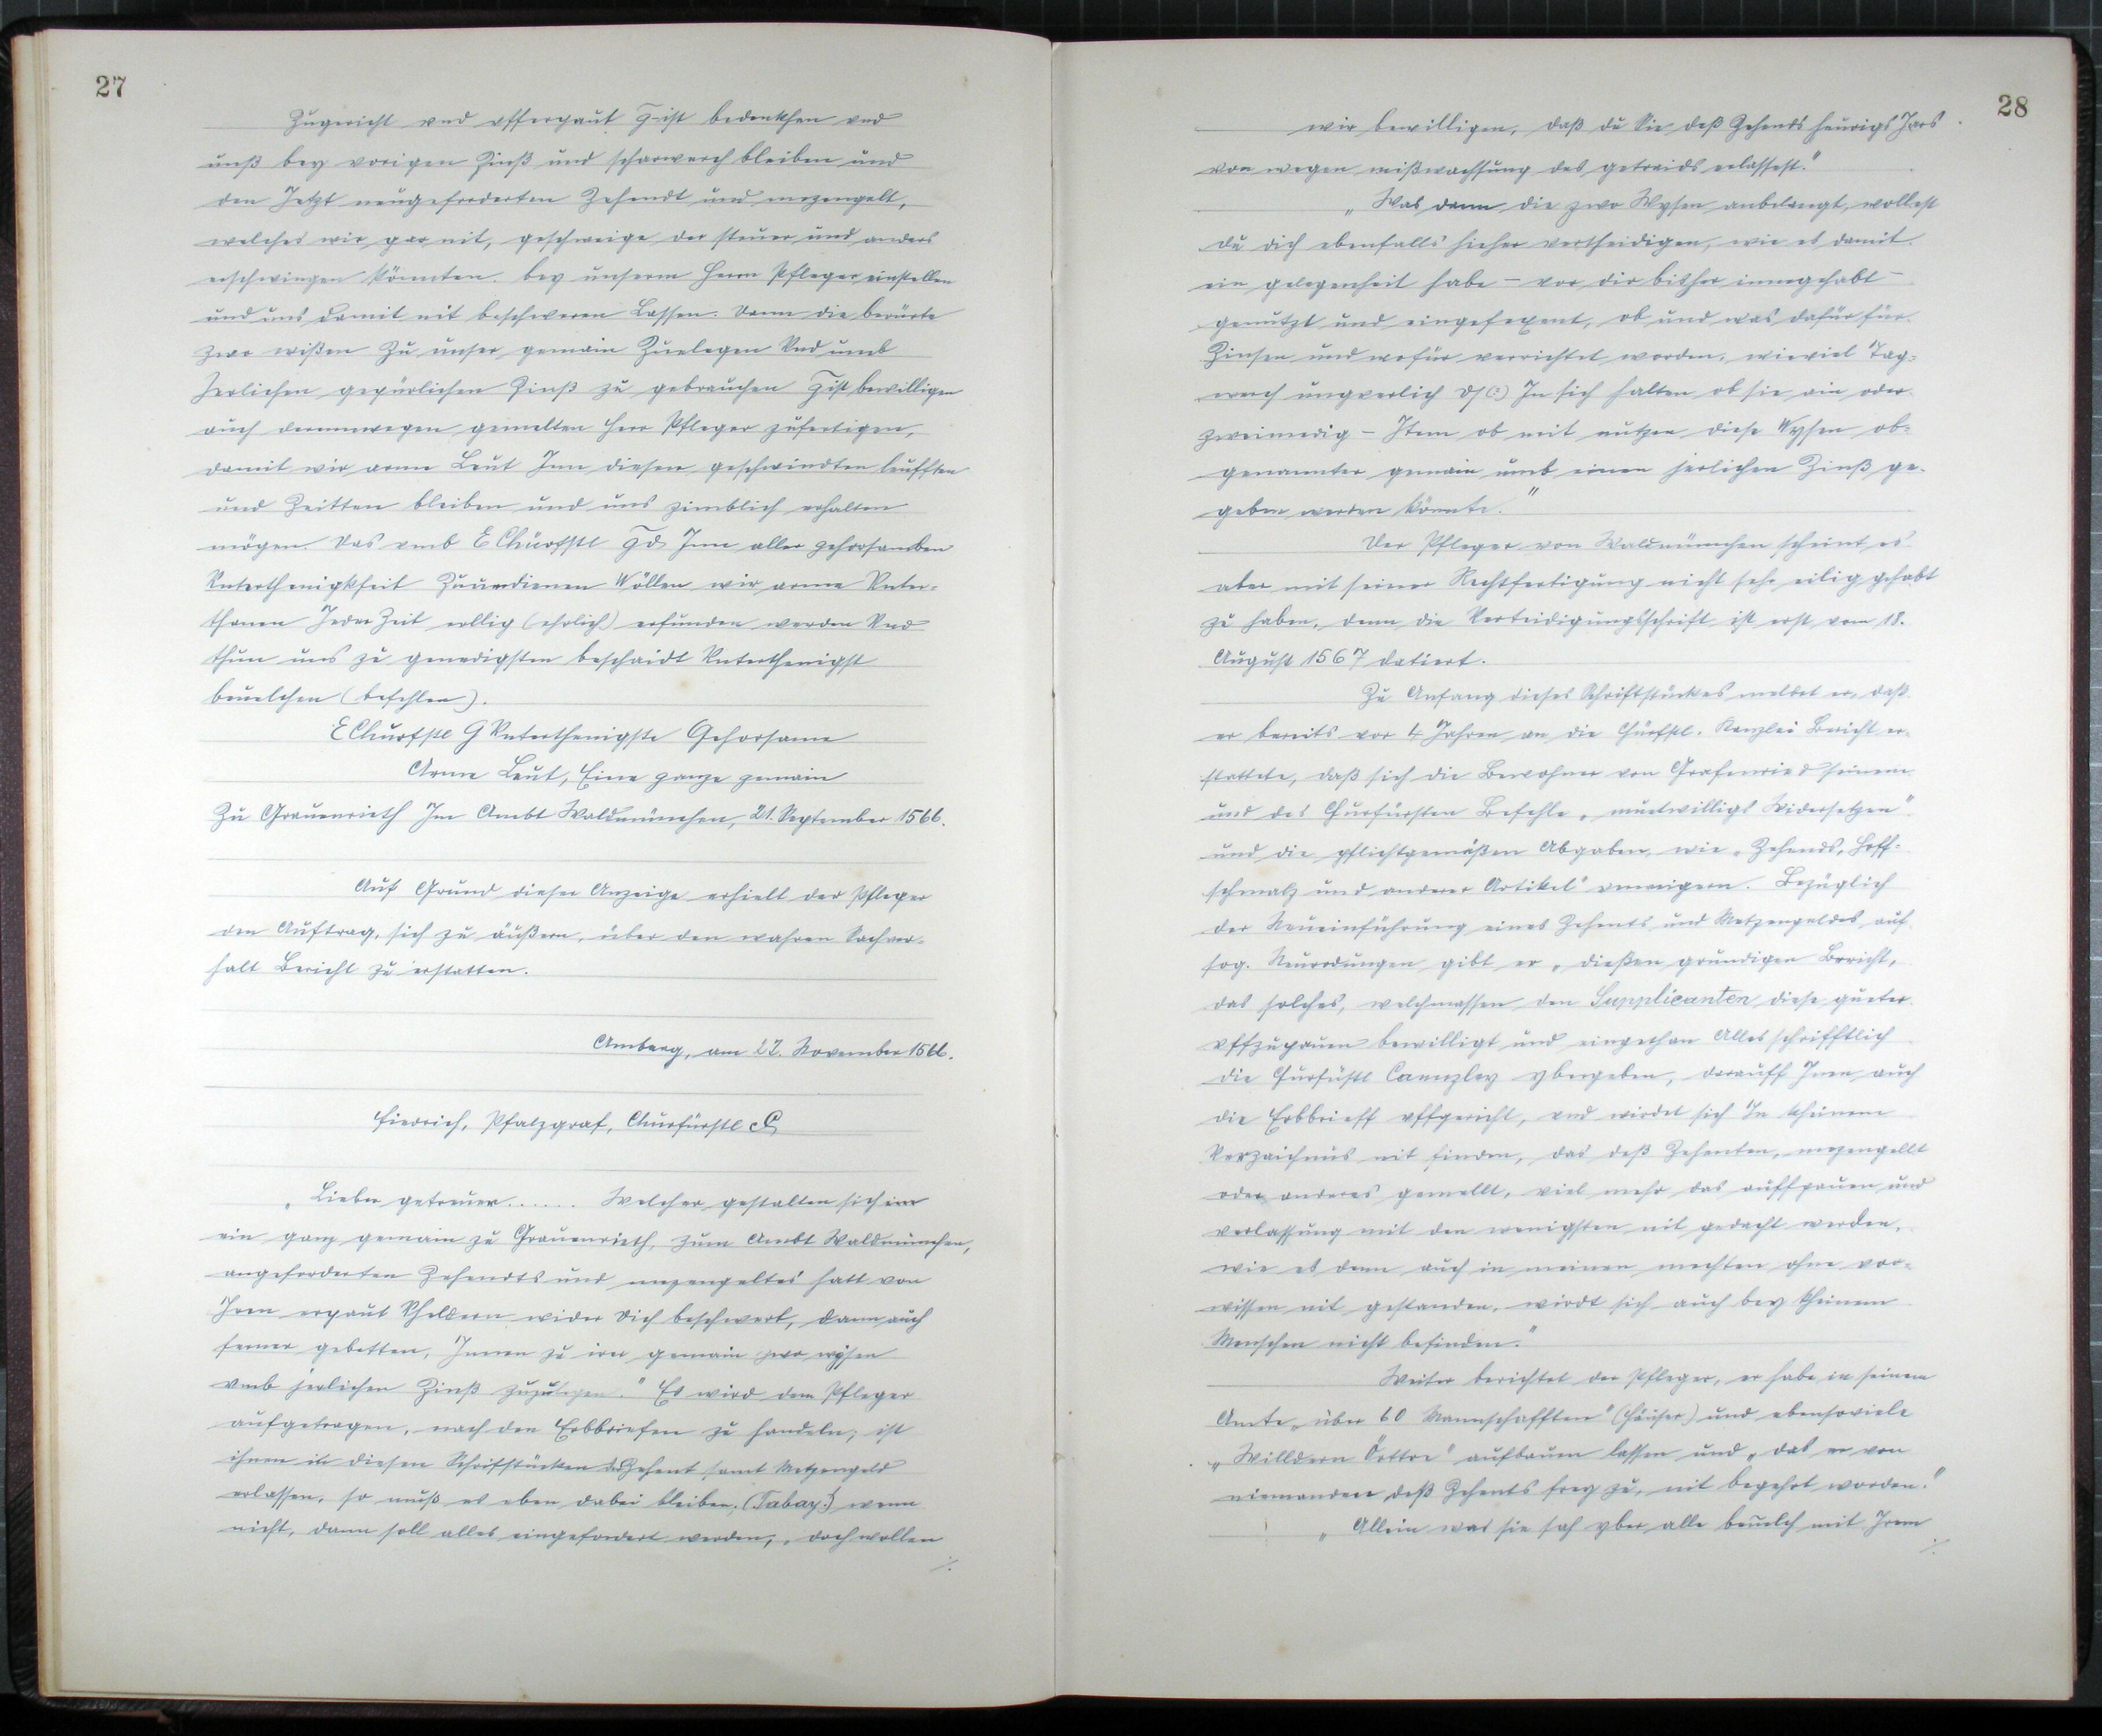 27
Zugericht und offergaut G-ist bedenkhen und
unß bey vorigen Zinß und scharwerch bleiben und
den Jetzt neugeforderten Zehendt und mezengelt,
welches wir gar nit, geschweige der steuer und anders
erschwingen könnten. bey unserm Herrn Pfleger einstellen
und uns damit nit beschweren Lassen. Dann die berürte
zwo wißen Zu unser gemain Zuelegen Und umb
Jerlichen gepürlichen Zinß zu gebrauchen Gist bewilligen
auch derennwegen gemelten Herr Pfleger zufertigen,
damit wir arme Leut Inn diesen geschwindten leufften
und Zeitten bleiben und uns zimblich erhalten
mögen. Das vmb E Churfstl Gd Inn aller gehorsamben
Unterthenigkheit Zuuerdienen Wöllen wir arme Unter-
thanen Jeder Zeit erllig (ehrlich) erfunden werden Und
thun uns zu genedigsten beschaidt Unterthenigst
beuelchen (befehlen).
E Churfstl G Unterthenigste Gehorsame
Arme Leut, Eine ganze gemain
Zu Grauenrieth Im Ambt Waldmünchen, 21. September 1566.
Auf Grund dieser Anzeige erhielt der Pfleger
den Auftrag, sich zu äußern, über den wahren Sachver-
halt Bericht zu erstatten.
Amberg, am 22. November 1566.
Fiedrich, Pfalzgraf, Churfürstl
„Lieber getreuer...... Welcher gestalten sich
ein ganz gemain zu Grauenrieth, zum Ambt Waldmünchen,
angeforderten Zehendts und mezengeltes hatt von
Iren erpaut Vheldern wider Dich beschwert, dann auch
ferner gebetten, Innen zu irer gemain zwo wysen
vmb jerlichen Zinß zuzulegen." Es wird dem Pfleger
aufgetragen, nach den Erbbriefen zu handeln; ist
ihnen in diesen Schriftstücken der Zehent samt Metzengeld
erlassen, so muß es eben dabei bleiben. (Tabay.!) wenn
nicht, dann soll alles eingefordert werden, „doch wollen
./.
28
wir bewilligen, daß du Sie deß Zehends heurigs Jars
von wegen mißwachsung des getraids erlassest."
„Was dann die zwo Wysen anbelangt, wollest
du dich ebenfalls hieher vertheidigen, wie es damit
ein gelegenheit habe – vor dir bisher inngehabt –
genutzt und eingefexent, ob und was dafür für
Zinsen und wofür verrichtet worden, wieviel Tag-
werch ungeverlich In sich halten ob sie ain oder
zweimedig – Item ob mit nutzen diese Wysen ob-
genannter gemain umb einen jerlichen Zinß ge-
geben werden könnte."
Der Pfleger von Waldmünchen scheint es
aber mit seiner Rechtfertigung nicht sehr eilig gehabt
zu haben, denn die Verteidigungsschrift ist erst vom 18.
August 1567 datiert.
Zu Anfang dieses Schriftstückes meldet er, daß
er bereits vor 4 Jahren an die Churfstl. Kanzlei Bericht er-
stattete, daß sich die Bewohner von Grafenried seinem
und des Churfürsten Befehle „muetwilligs Widersetzen"
und die pflichtgemäßen Abgaben, wie „Zehends, Hoff-
schmalz und anderer Artikel" verweigern. Bezüglich
der Neueinführung eines Zehents und Metzengeldes auf
sog. Neurodungen gibt er „dießen grundigen Bericht,
das solches, welchmassen den Supplicanten diese gueter
vffzupauen bewilligt und eingethan Alles schrifftlich
die Curfüstl Canzley ybergeben, darauff Inen auch
die Erbbrieff vffgericht, und wirdet sich In kheinem
Verzaichnus nit finden, das deß Zehenten, mezengellt
oder anderes gemellt, viel mehr das auffpauen und
verlassung mit den wenigsten nit gedacht werden,
wie es dann auch in meinen mechten ohne vor-
wissen nit gestanden, wirdt sich auch bey kheinem
Menschen nicht befinden."
Weiter berichtet der Pfleger, er habe in seinem
Amte „über 60 Mannschafften" (Häuser) und ebensoviele
„Willdern Örtter" aufbauen lassen und „das er von
niemanden deß Zehents frey zu, nit begehrt worden."
„Allein was sie sah yber alle beuelch mit Irem
./.